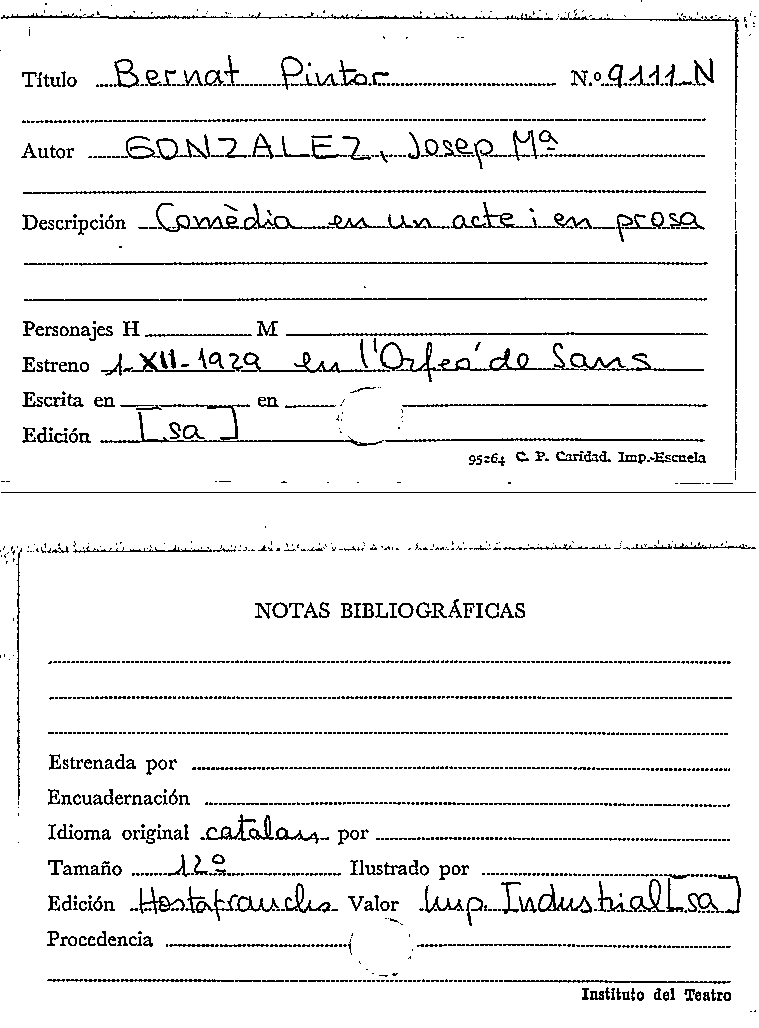 Título Bernat Pintor N.º 9111-N
Autor GONZALEZ, Josep Mª
Descripción Comèdia en un acte i en prosa
Personajes H M
Estreno 1-XII-1929 en l'Orfeó de Sans
Escrita en en
Edición [sa]
95264 C. P. Caridad. Imp.-Escuela
NOTAS BIBLIOGRÁFICAS
Estrenada por
Encuadernación
Idioma original catalan por
Tamaño 12º Ilustrado por
Edición Hostafranchs Valor Imp. Industrial [sa]
Procedencia
Instituto del Teatro